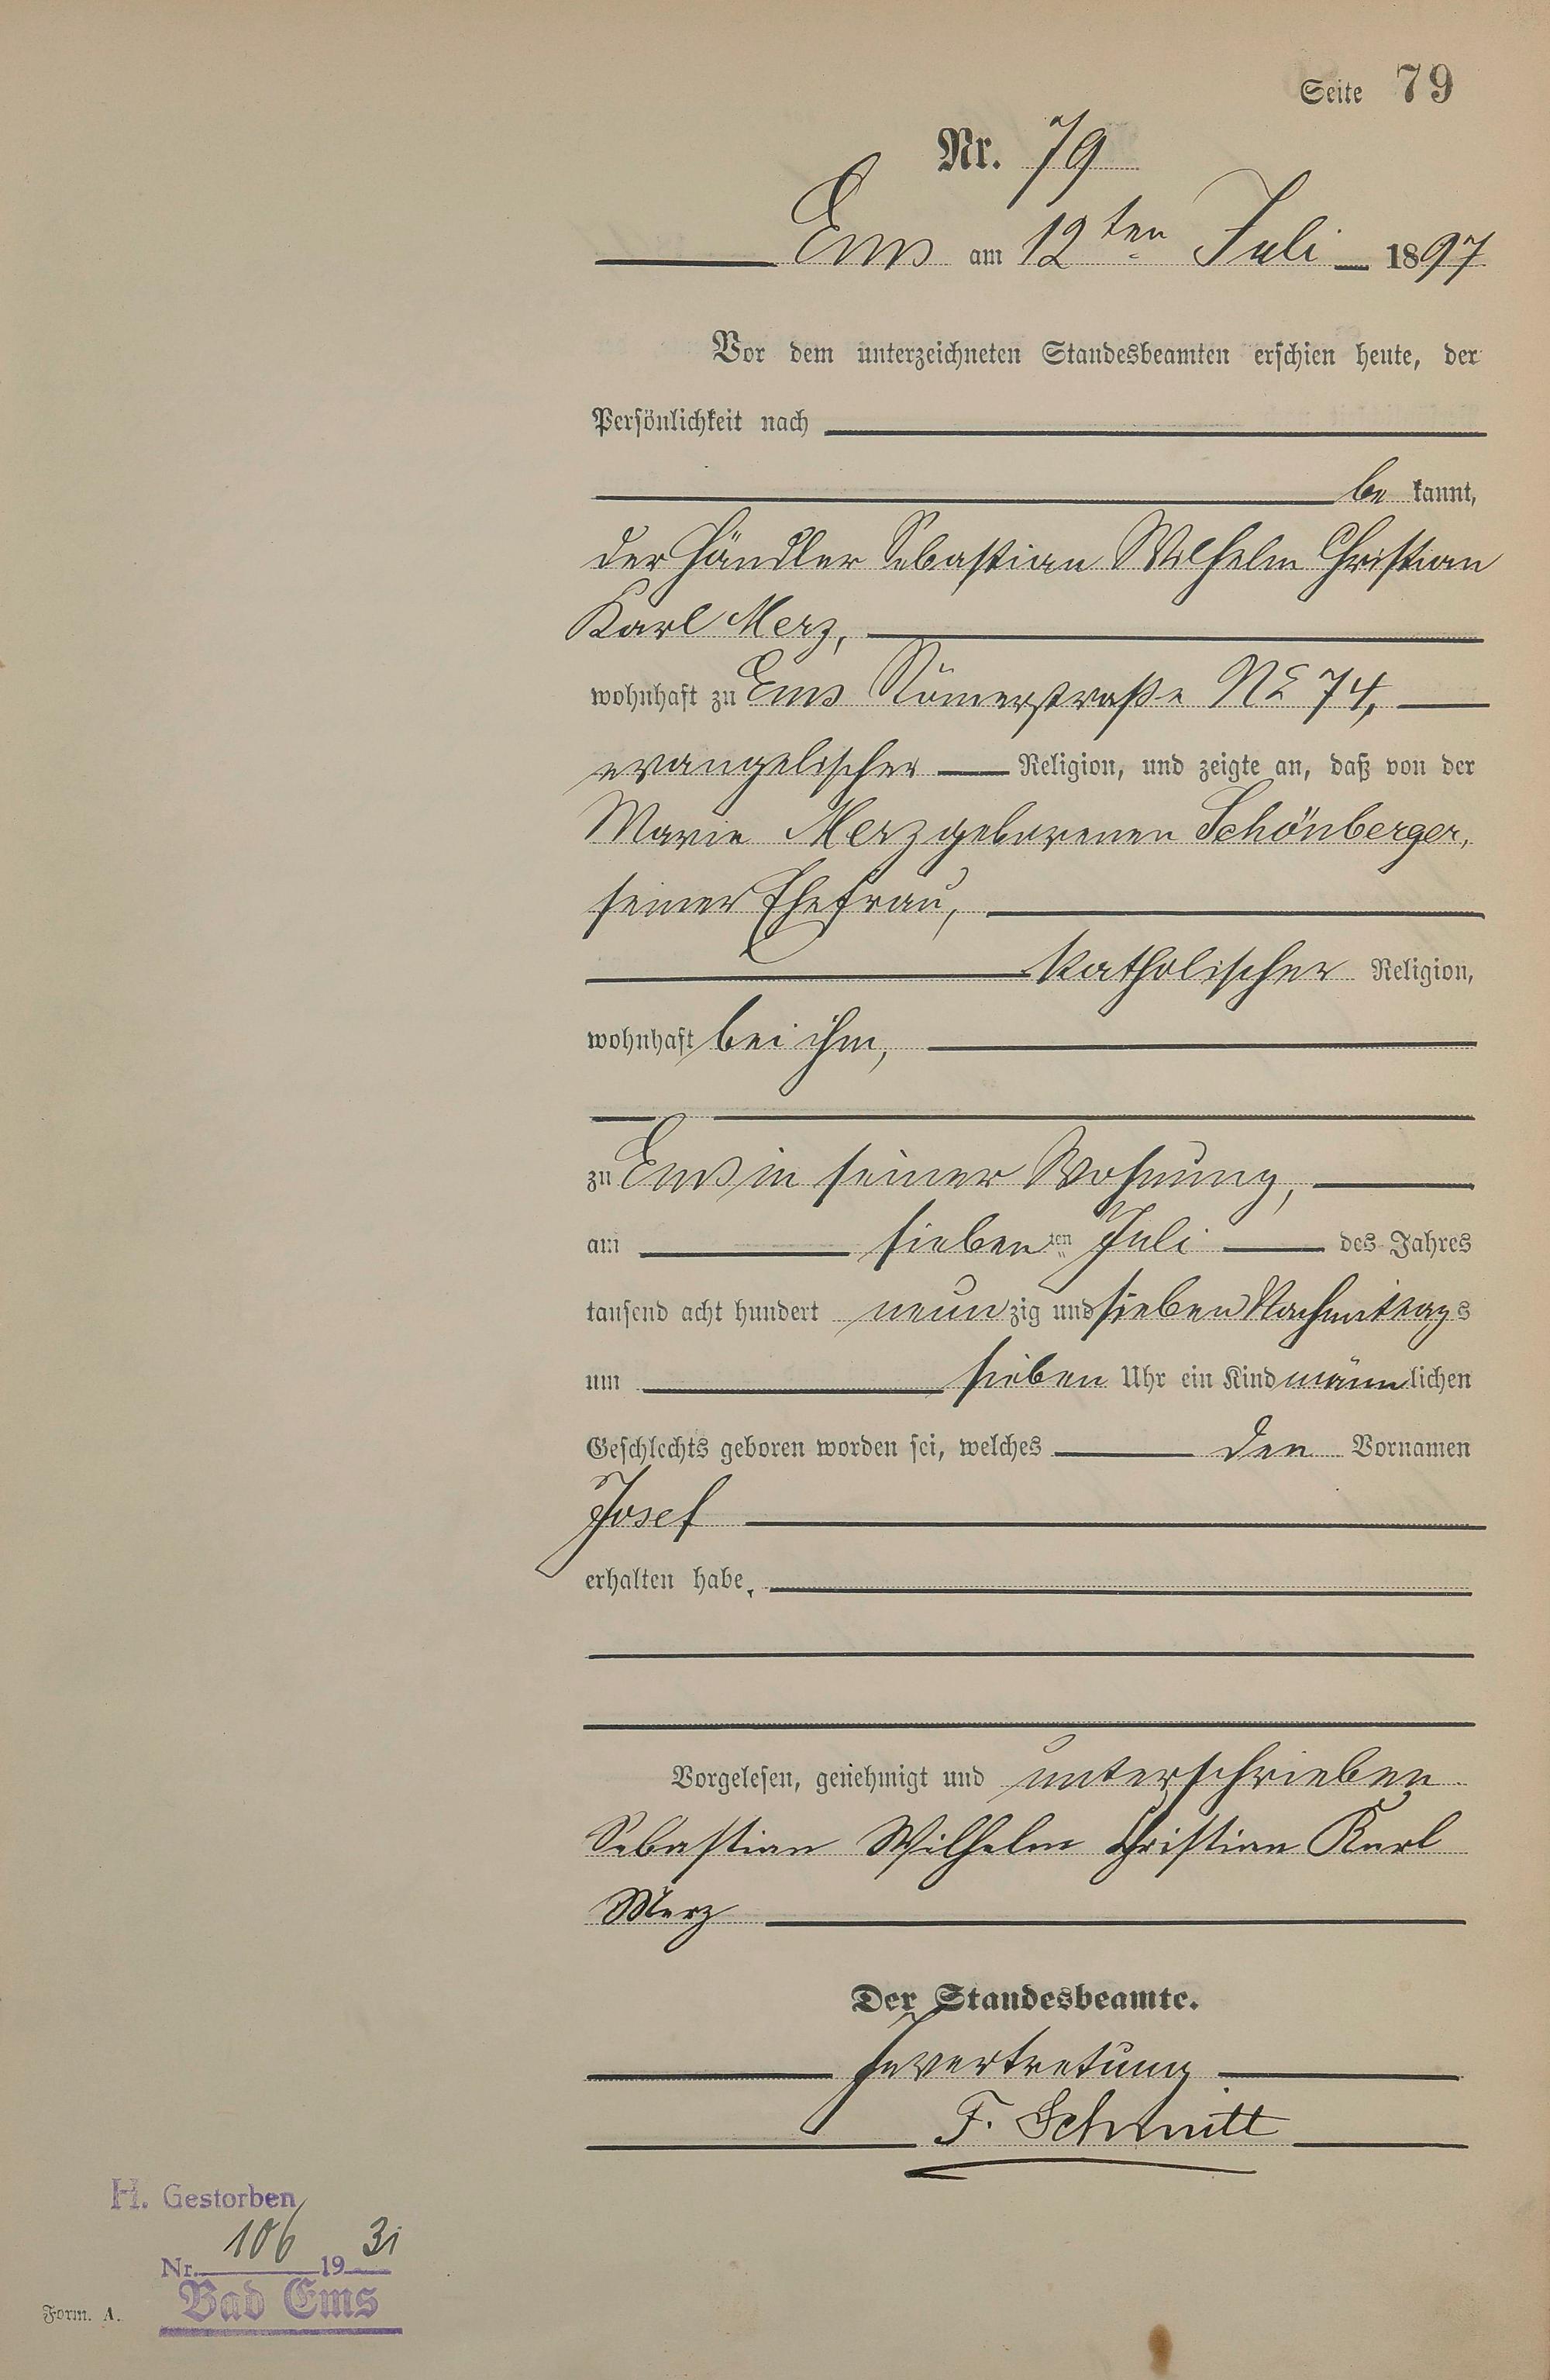 Seite 79
Nr. 79
Ems am 12ten Juli 1897
Vor dem unterzeichneten Standesbeamten erschien heute, der
Persönlichkeit nach
be kannt,
der Händler Sebastian Wilhelm Christian
Karl Merz,
wohnhaft zu Ems Römerstraße No 74,
evangelischer Religion, und zeigte an, daß von der
Marie Merz geborenen Schönberger,
seiner Ehefrau,
katholischer Religion,
wohnhaft bei ihm,
zu Ems in seiner Wohnung,
am siebenten Juli des Jahres
tausend acht hundert neunzig und sieben Nachmittags
um sieben Uhr ein Kind männlichen
Geschlechts geboren worden sei, welches den Vornamen
Josef
erhalten habe,
Vorgelesen, genehmigt und unterschrieben
Sebastian Wilhelm Christian Karl
Merz
Der Standesbeamte.
Invertretung
F. Schmitt
H. Gestorben
Nr. 106 1931
Bad Ems
Form. A.